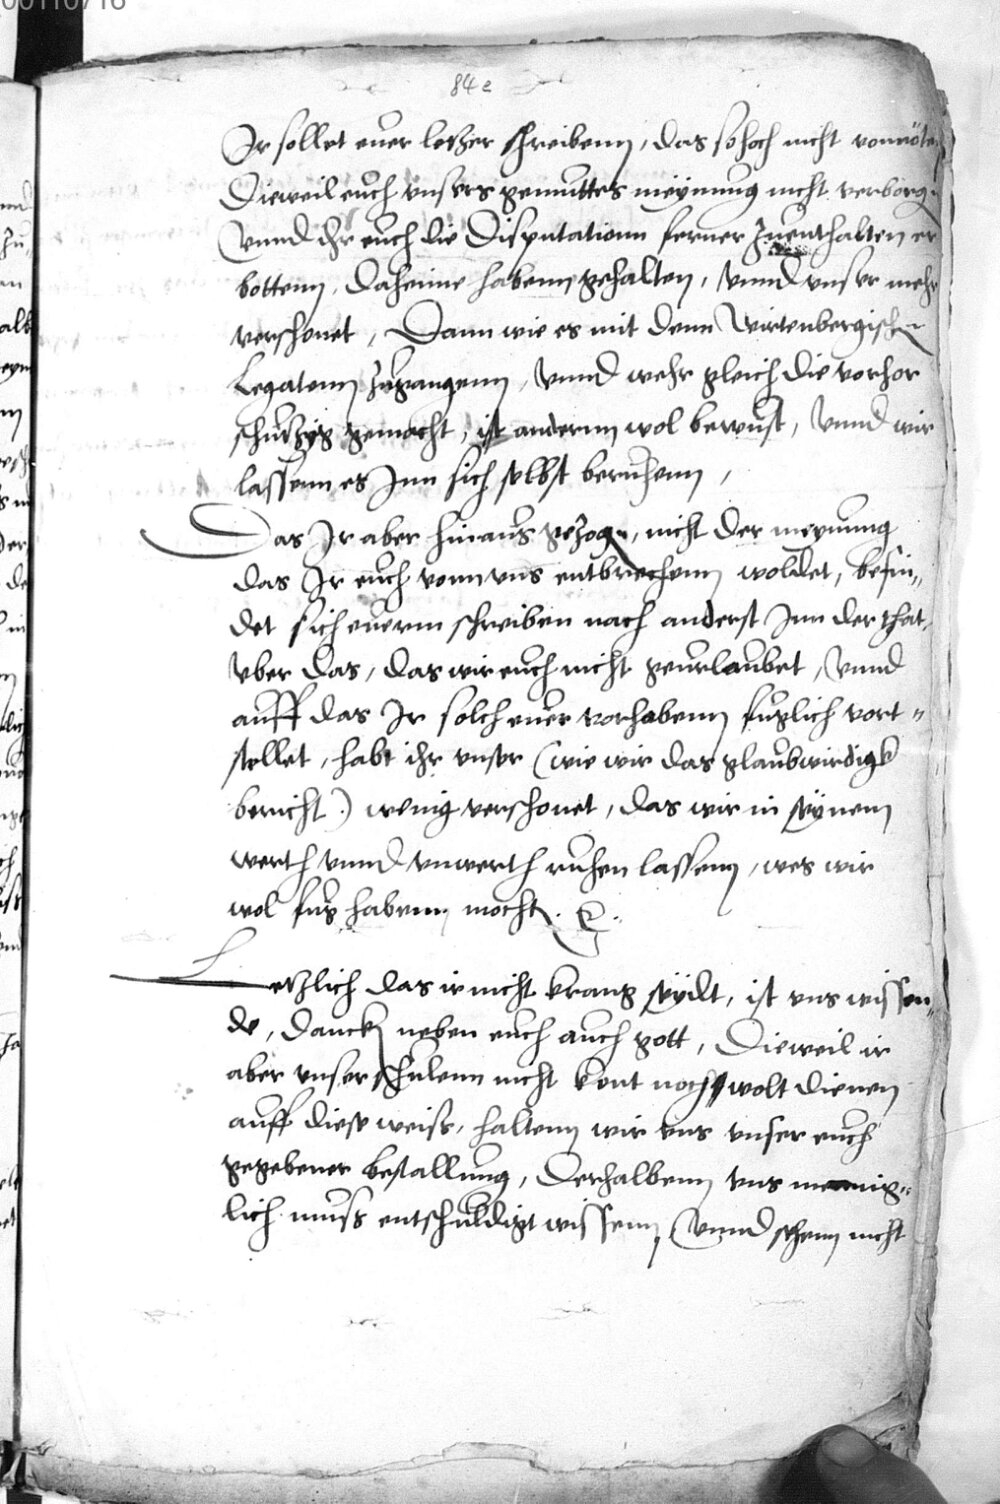 00110716
84e
Ir sollet euer letzer schreibenn, das sohoch nicht vonnöten
Dieweil euch vnsers gemuttes meÿnung nicht verborg
Vnnd ihr euch die Disputationn ferner Zuenthalten er
bottenn, daheime habenn gehalten, Vnnd vnser mehr
verschonet, Dann wie es mit denn Wirtenbergisch
Legatenn zugangenn, Vnnd wehr gleich die vorhor
schutzig gemacht, ist andernn wol bewust, Vnnd wir
lassenn es Inn sich selbst beruhenn,
Das Ir aber hinaus gezogn, nicht der meynung
das Ir euch vonn vns entbrechenn woldet, befin„
det sich euerm schreiben nach anderst Inn der that,
Vber das, das wir euch nicht geurlaubet, Vnnd
auff das Ir solch euer vorhabenn fuglich vort„
stellet, habt ihr vnser (wie wir das glaubwirdigk
bericht) wenig verschonet, das wir in seÿnem
werth vnnd vnwerth ruhen lassenn, wes wir
wol fug habenn mocht
Letzlich das ir nicht krang seÿdt, ist vns wissen„
de, danck neben euch auch gott, Dieweil ir
aber vnser schulenn nicht kont noch wolt dienen
auff diese weiss, haltenn wir vns vnser euch
gegebener bestallung, Derhalbenn vns mennig„
lich muss entschuldigt wissenn, Vnnd sehenn nicht